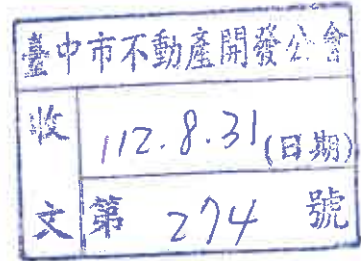 臺中市不動產開發公會
收文
112.8.31(日期)
第 274 號